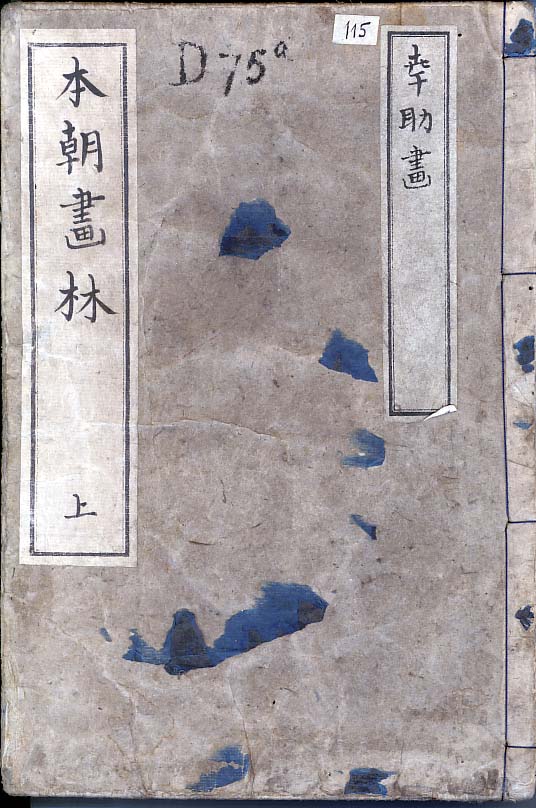 115
D-75a
幸助畫
本朝畫林
上